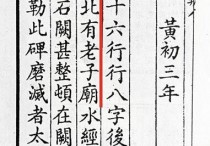 黃初三年
十六行行八字後
北有老子廟水經
石闕甚整頓在闕
勒此碑磨滅者太